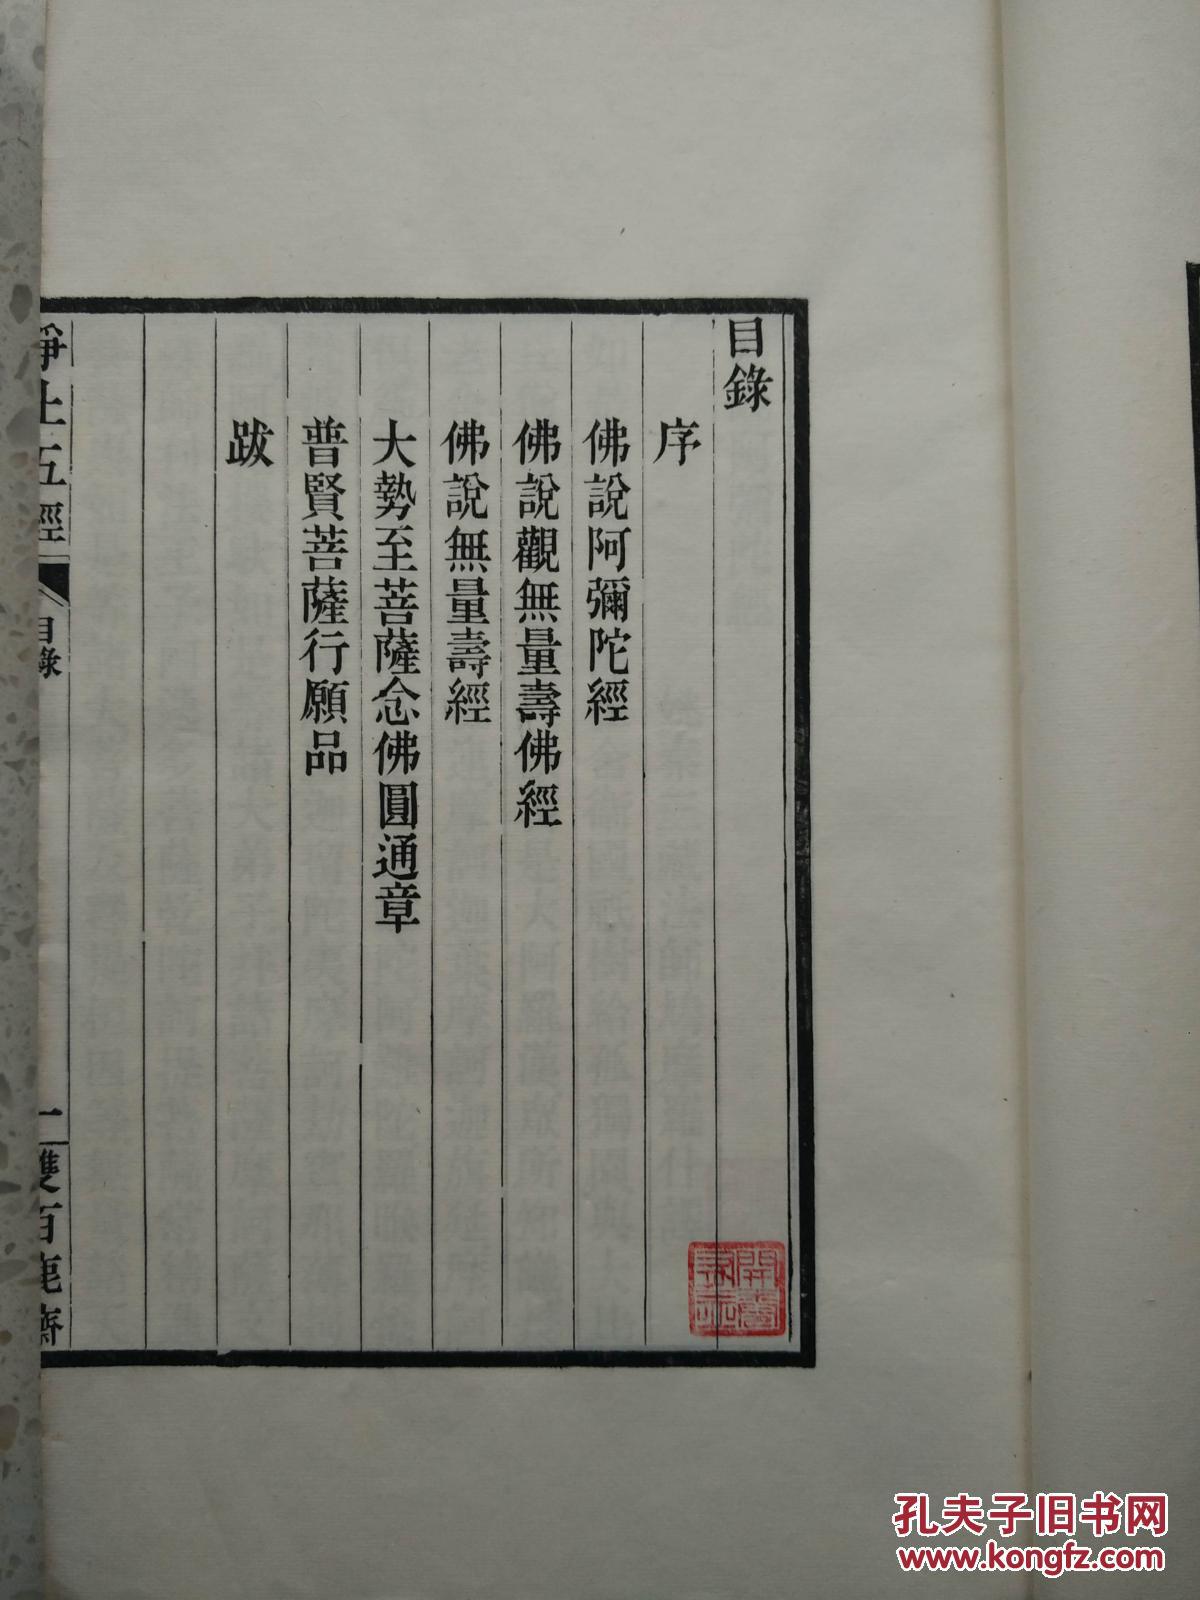 目錄
序
佛說阿彌陀經
佛說觀無量壽佛經
佛說無量壽經
大勢至菩薩念佛圓通章
普賢菩薩行願品
跋
淨土五經
目錄
一
雙百鹿齋
孔夫子旧书网
www.kongfz.com